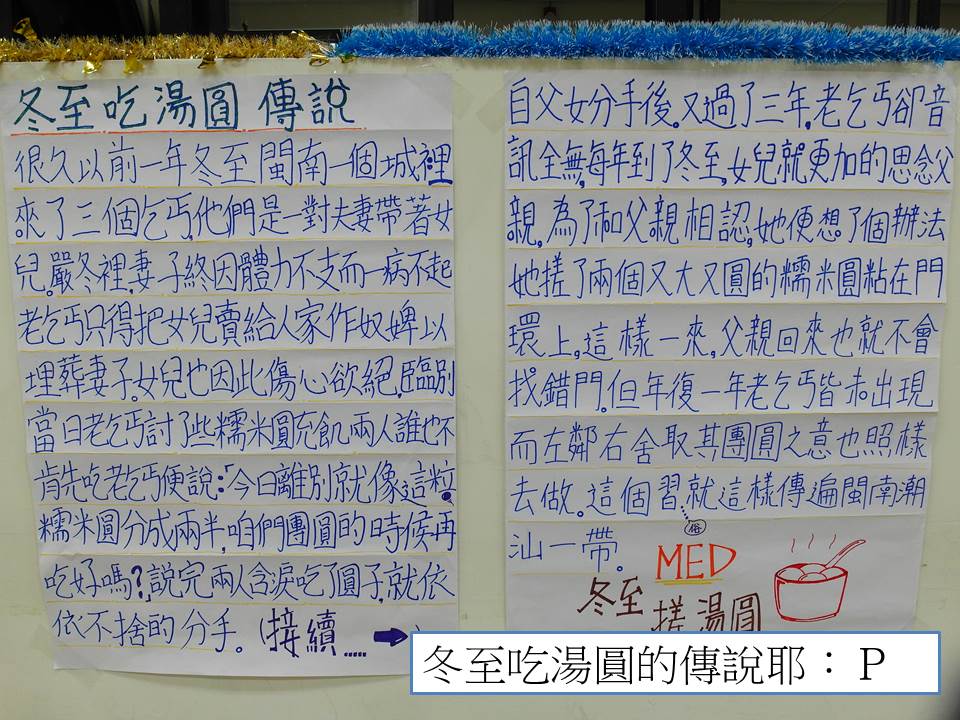 冬至吃湯圓 傳說
很久以前一年冬至閩南一個城裡
來了三個乞丐,他們是一對夫妻帶著女
兒。嚴冬裡,妻子終因體力不支而一病不起
老乞丐只得把女兒賣給人家作奴婢以
埋葬妻子。女兒也因此傷心欲絕,臨別
當日老乞丐討了些糯米圓充飢兩人誰也不
肯先吃老乞丐便說:「今日離別就像這粒
糯米圓分成兩半,咱們團圓的時候再
吃好嗎?說完兩人含淚吃了圓子,就依
依不捨的分手。(接續.....➡)
自父女分手後。又過了三年,老乞丐卻音
訊全無,每年到了冬至,女兒就更加的思念父
親。為了和父親相認,她便想了個辦法
她搓了兩個又大又圓的糯米圓粘在門
環上,這樣一來,父親回來也就不會
找錯門。但年復一年老乞丐皆未出現
而左鄰右舍取其團圓之意也照樣
去做。這個習就這樣傳遍閩南潮
俗
汕一帶。
MED
冬至
搓湯圓
冬至吃湯圓的傳說耶:P